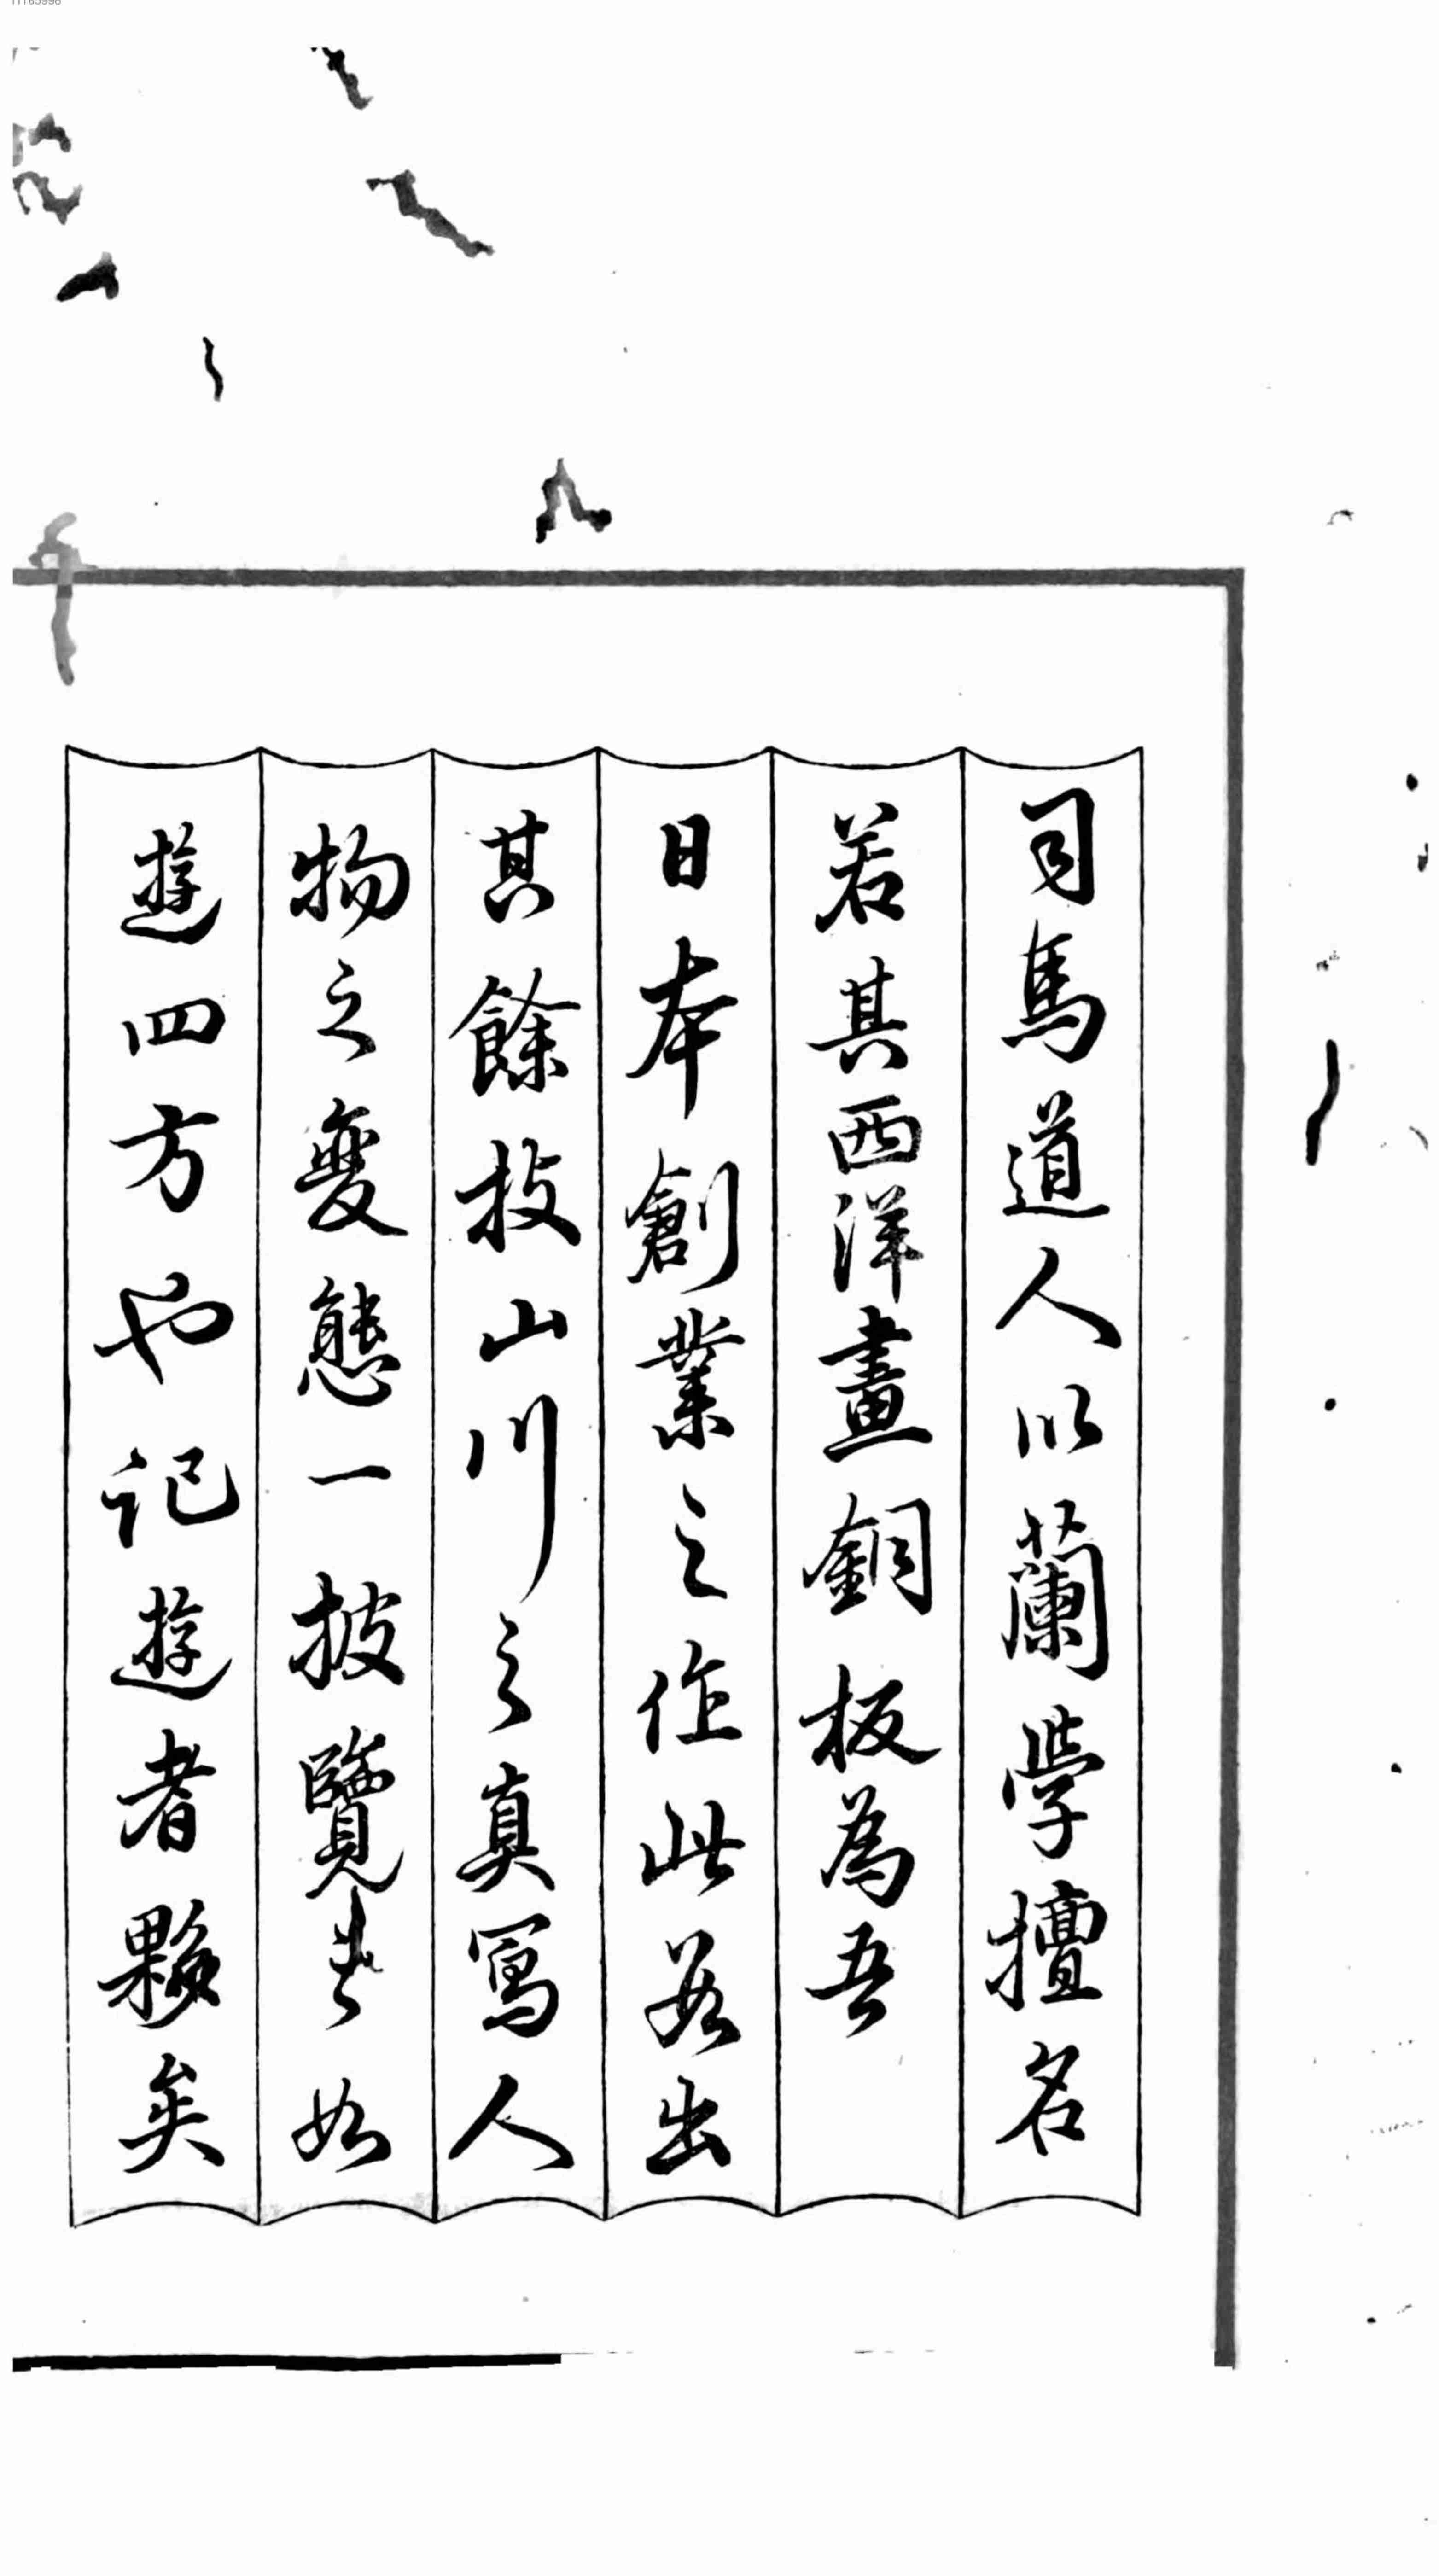 司馬道人以蘭學擅名
若其西洋畫銅板為吾
日本創業之作此為出
其餘技山川之真寫人
物之變態一披覽如
遊四方也記遊者夥矣